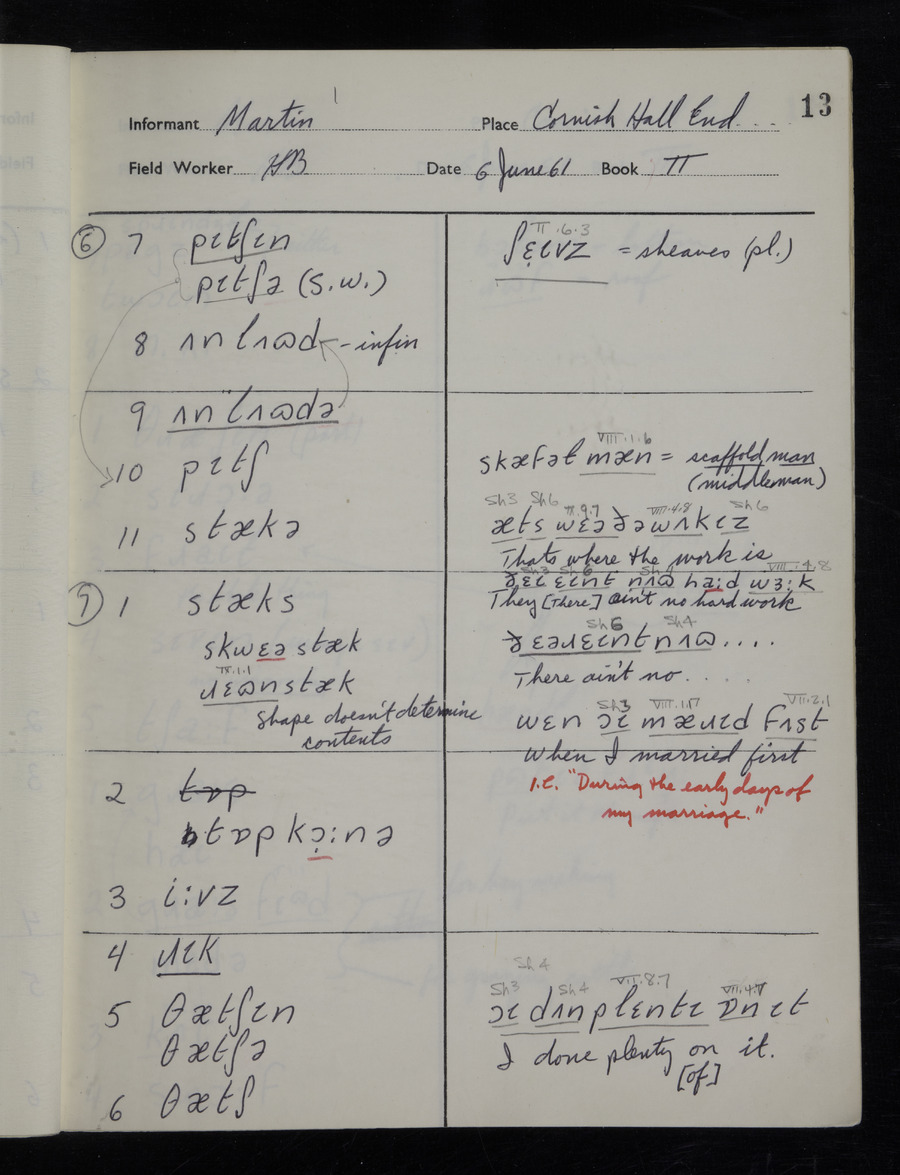 13
Informant Martin Place Cornish Hall End
Field Worker HB Date 6 June 61 Book II
⑥ 7 pɪtʃɪn
pɪtʃə (S.W.)
8 ʌnlʌʊd - infin
9 ʌnˈlʌʊdə
10 pɪtʃ
11 stækə
⑦ 1 stæks
skwɛə stæk
II.1.1
ɹɛʊnstæk
shape doesn't determine
contents
2 tɒp
tɒpkɔ̣:nə
3 i:vz
4 ɹɪk
5 θætʃɪn
θætʃə
6 θætʃ
II.6.3
ʃɛ̣ɪvz = sheaves (pl.)
VIII.1.6
skæfəl mæn = scaffold man
(middleman)
Sh3 Sh6 IX.9.7 VIII.4.8 Sh6
æts wɛə ðə wʌk ɪz
Thats where the work is
VIII.4.8
ðɛɪ ɛɪnt nʌʊ ha:d wɜ:k
They [There] ain't no hard work
Sh6 Sh4
ðɛəɹɛɪnt nʌʊ ....
There ain't no ....
Sh3 VIII.1.17 VII.2.1
wɛn ɔɪ mæɹɪd fɪst
When I married first
i.e. "During the early days of
my marriage."
Sh4
Sh3 Sh4 VII.8.7
ɔɪ dʌn plɛntɪ ɒn ɪt
I done plenty on it.
[of]